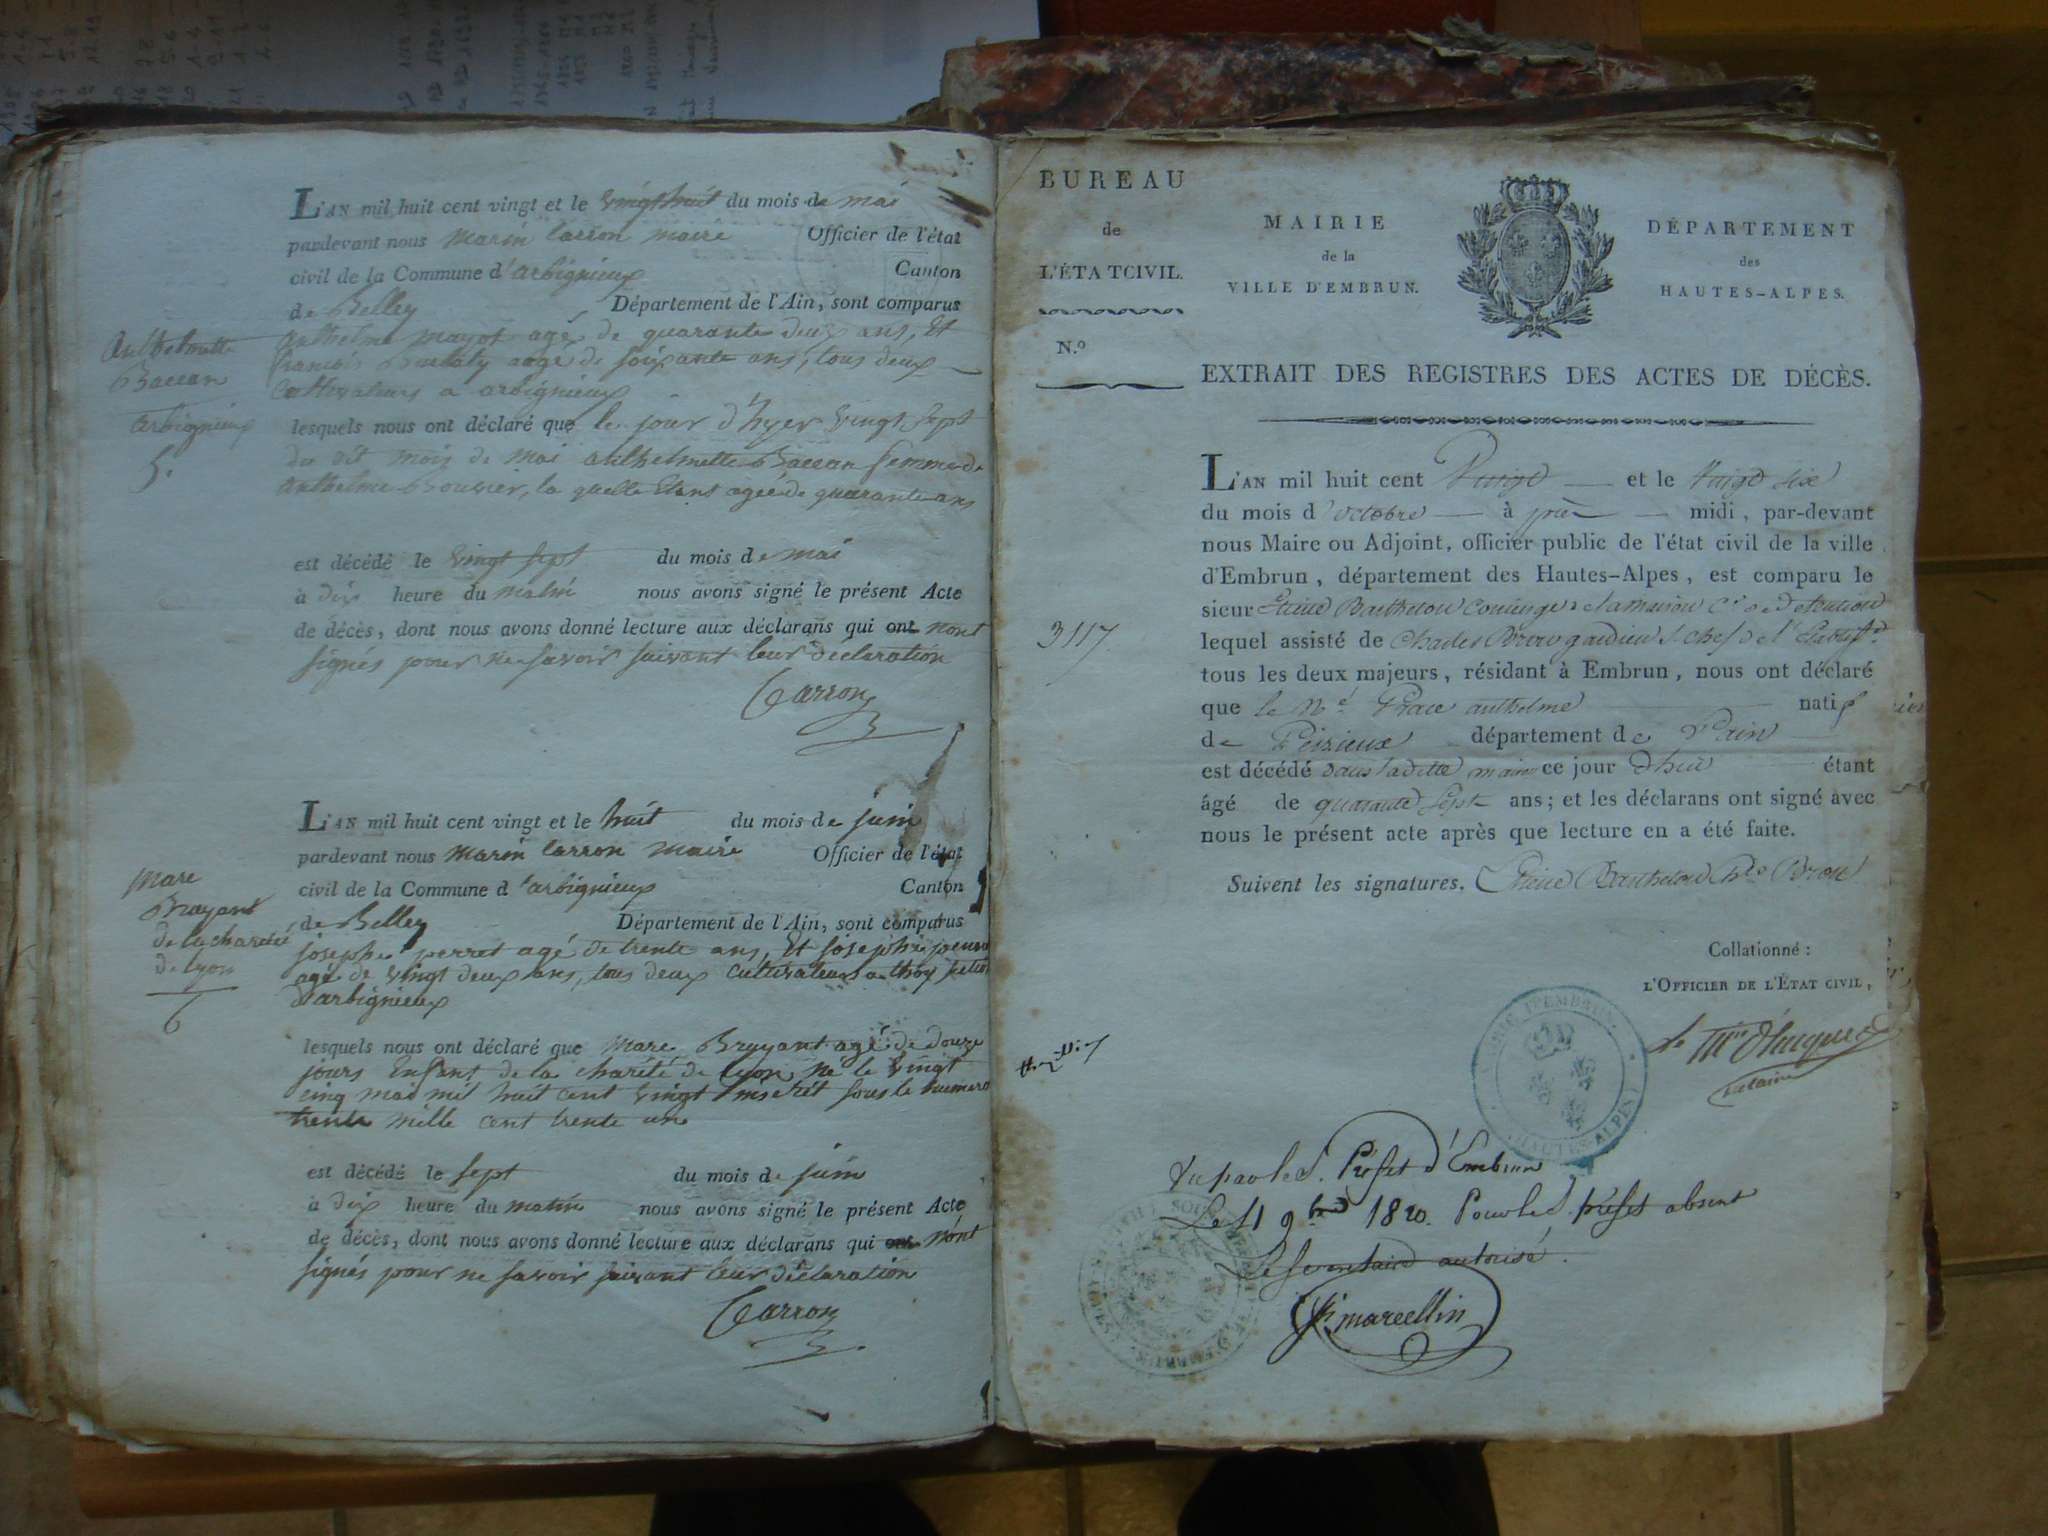 L'AN mil huit cent vingt et le vingt huit du mois de mai
pardevant nous marin Carron maire Officier de l'état
civil de la Commune d'arbignieux Canton
de Belley Département de l'Ain, sont comparus
anthelme mayot agé de quarante deux ans, Et
francois agé de soixante ans, tous deux
Cultivateurs a arbignieux
lesquels nous ont déclaré que le jour d'hyer vingt sept
du dit mois de mai anthelmette Baccan femme de
anthelme Bouvier, la quelle Etant agée de quarante ans
est décédé le vingt sept du mois de mai
à dix heure du matin nous avons signé le présent Acte
de décès, dont nous avons donné lecture aux déclarans qui ont nont
signés pour ne savoir suivant leur déclaration
Carron
Anthelmette
Baccan
arbignieux
5.
L'AN mil huit cent vingt et le huit du mois de juin
pardevant nous marin Carron maire Officier de l'état
civil de la Commune d'arbignieux Canton
de Belley Département de l'Ain, sont comparus
joseph perret agé de trente ans, Et joseph
agé de vingt deux ans, tous deux cultivateurs a thoy
d'arbignieux
lesquels nous ont déclaré que marc Brayant agé de douze
jours Enfant de la charité de Lyon né le vingt
cinq mai mil huit cent vingt inscrit sous le numero
trente mille cent trente un
est décédé le sept du mois de juin
à dix heure du matin nous avons signé le présent Acte
de décès, dont nous avons donné lecture aux déclarans qui ont nont
signés pour ne savoir suivant leur déclaration
Carron
marc
Brayant
de la charité
de Lyon
6
BUREAU
de
L'ÉTATCIVIL.
N.º
MAIRIE
de la
VILLE D'EMBRUN.
DÉPARTEMENT
des
HAUTES-ALPES.
EXTRAIT DES REGISTRES DES ACTES DE DÉCÈS.
L'AN mil huit cent Vingt et le Vingt six
du mois d'octobre à midi, par-devant
nous Maire ou Adjoint, officier public de l'état civil de la ville
d'Embrun, département des Hautes-Alpes, est comparu le
sieur Etiene Barthelon Concierge de la maison C.le de detention
3117
lequel assisté de Charles gardien chef de l'
tous les deux majeurs, résidant à Embrun, nous ont déclaré
que le n.é Place anthelme natif
de Peizieux département de l'ain
est décédé dans ladite maison ce jour d'hui étant
âgé de quarante sept ans; et les déclarans ont signé avec
nous le présent acte après que lecture en a été faite.
Suivent les signatures. Etiene Barthelon
Collationné :
L'OFFICIER DE L'ÉTAT CIVIL,
MAIRIE D'EMBRUN
(HAUTES-ALPES)
Vu par le S. Préfet d'Embrun
Le 11 9bre 1820. Pour le S. préfet absent
Le secretaire autorisé.
marcellin